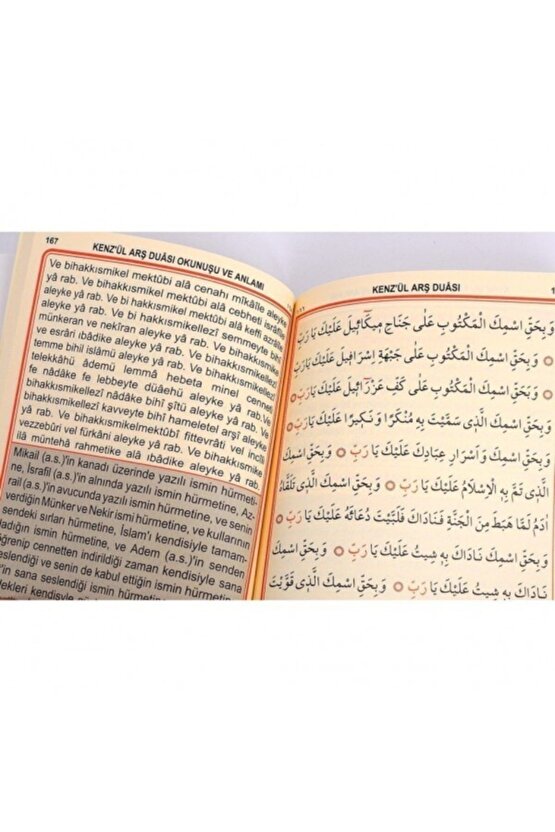 167
KENZ'ÜL ARŞ DUÂSI OKUNUŞU VE ANLAMI
Ve bihakkısmikel mektûbi alâ cenahı mîkâîle aleyke
yâ rab. Ve bihakkısmikel mektûbi alâ cebheti isrâfîle
aleyke yâ rab. Ve bi hakkısmikel mektûbi alâ keffi azrâîle
aleyke yâ rab. Ve bi hakkısmikellezî semmeyte bihî
münkeran ve nekîran aleyke yâ rab. Ve bihakkısmike
ve esrâri ıbâdike aleyke yâ rab. Ve bihakkısmikellezî
temme bihil islâmü aleyke yâ rab. Ve bihakkısmikellezî
telekkâhü âdemü lemmâ hebeta minel cenneti
fe nâdâke fe lebbeyte düâehü aleyke yâ rab. Ve
bihakkısmikellezî nâdâke bihî şîtü aleyke yâ rab. Ve
bihakkısmikellezî kavveyte bihî hameletel arşi aleyke
yâ rab. Ve bihakkısmikelmektûbî fittevrâti vel incîli
vezzebûri vel fürkâni aleyke yâ rab. Ve bihakkısmike
ilâ müntehâ rahmetike alâ ıbâdike aleyke yâ rab.
Mikail (a.s.)'in kanadı üzerinde yazılı ismin hürmeti
ne, İsrafil (a.s.)'in alnında yazılı ismin hürmetine, Az-
rail (a.s.)'in avucunda yazılı ismin hürmetine, ve senin
verdiğin Münker ve Nekir ismi hürmetine, ve kullarının
sendeki sırları hürmetine, İslam'ı kendisiyle tamam-
ladığın ismin hürmetine, ve Adem (a.s.)'in senden
öğrenip cennetten indirildiği zaman kendisiyle sana
seslendiği ve senin de kabul ettiğin ismin hürmetine
'in sana seslendiği ismin hürmetine
KENZ'ÜL ARŞ DUÂSI
وَ بِحَقِّ اسْمِكَ الْمَكْتُوبِ عَلٰى جَنَاحِ مِيكَٓائِيلَ عَلَيْكَ يَا رَبِّ
وَ بِحَقِّ اسْمِكَ الْمَكْتُوبِ عَلٰى جَبْهَةِ اِسْرَافِيلَ عَلَيْكَ يَا رَبِّ
وَ بِحَقِّ اسْمِكَ الْمَكْتُوبِ عَلٰى كَفِّ عَزْرَٓائِيلَ عَلَيْكَ يَا رَبِّ
وَ بِحَقِّ اسْمِكَ الَّذِى سَمَّيْتَ بِهِ مُنْكَرًا وَ نَكِيرًا عَلَيْكَ يَا رَبِّ
وَ بِحَقِّ اسْمِكَ وَ اَسْرَارِ عِبَادِكَ عَلَيْكَ يَا رَبِّ وَ بِحَقِّ اسْمِكَ
الَّذِى تَمَّ بِهِ الْاِسْلَامُ عَلَيْكَ يَا رَبِّ وَ بِحَقِّ اسْمِكَ الَّذِى تَلَقَّاهُ
اٰدَمُ لَمَّا هَبَطَ مِنَ الْجَنَّةِ فَنَادَاكَ فَلَبَّيْتَ دُعَائَهُ عَلَيْكَ يَا رَبِّ
وَ بِحَقِّ اسْمِكَ نَادَاكَ بِهِ شِيتُ عَلَيْكَ يَا رَبِّ وَ بِحَقِّ اسْمِكَ
نَادَاكَ بِهِ شِيتُ عَلَيْكَ يَا رَبِّ وَ بِحَقِّ اسْمِكَ الَّذِى قَوَّيْتَ